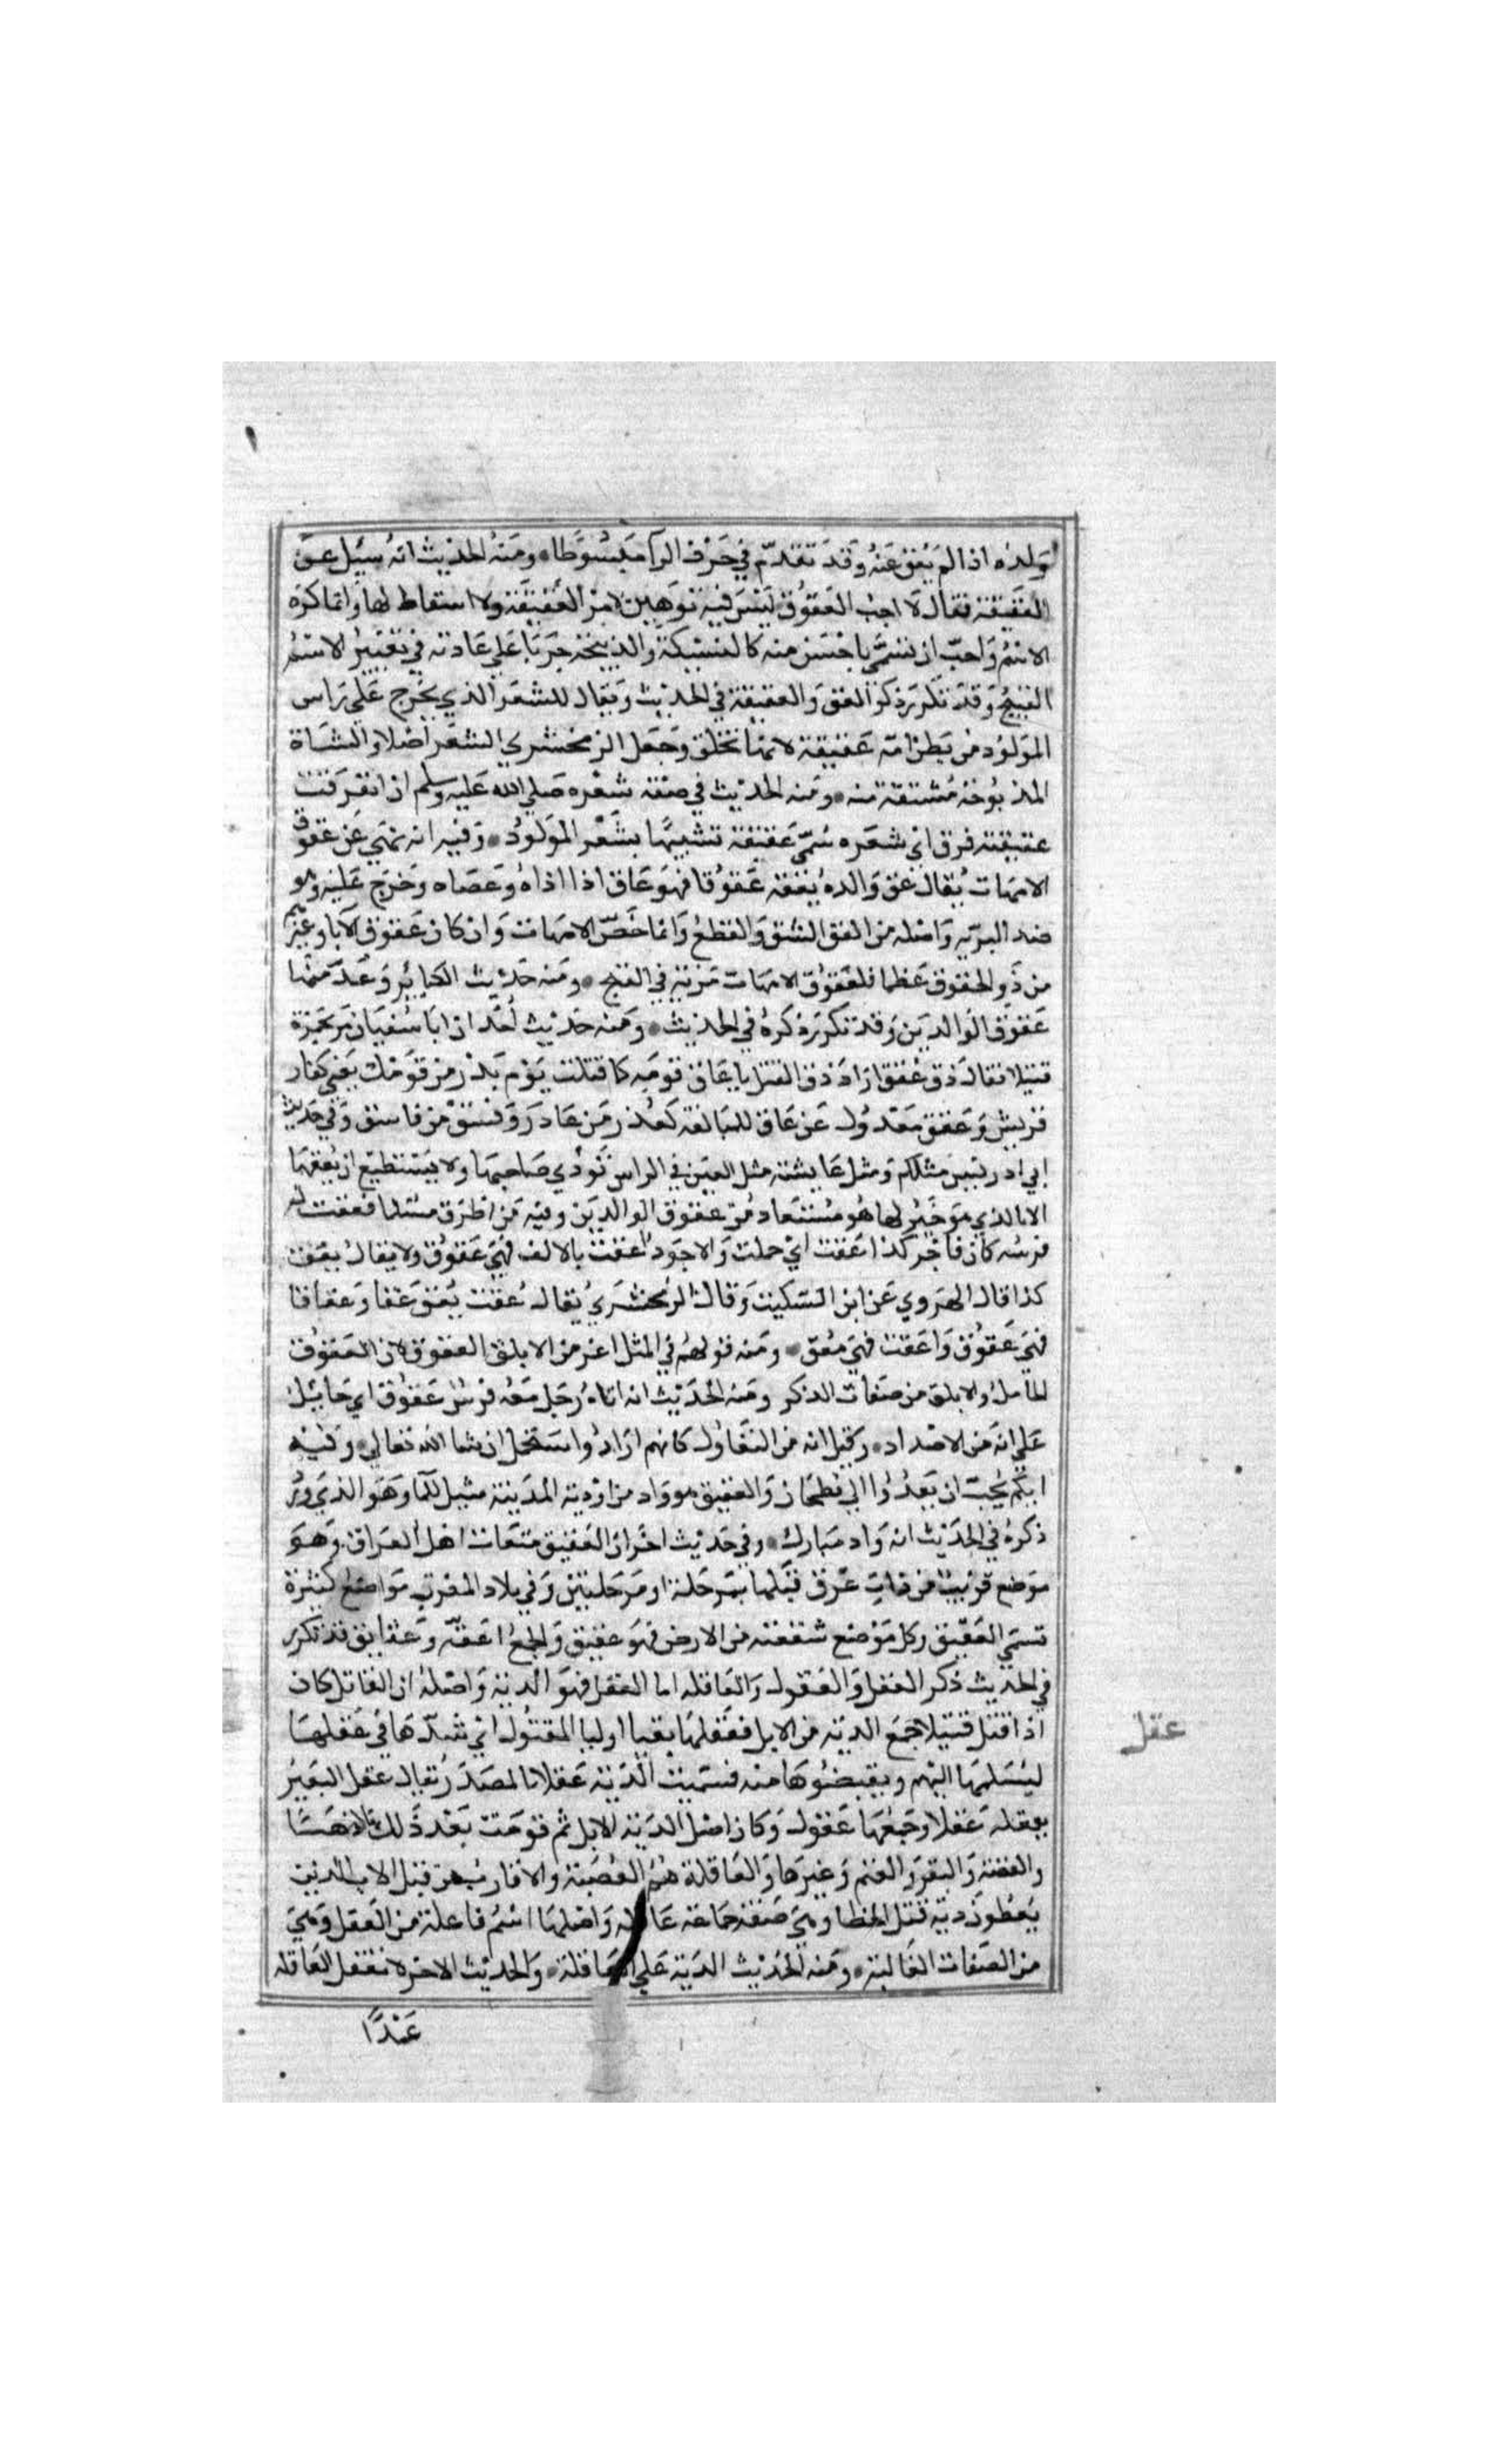 ولده اذا لم يعق عنه وقد تقدم في حرف الرا مبسوطا ومنه الحديث انه سيل عن
العقيقة فقال لا احب العقوق ليس فيه توهين لامر العقيقة ولا اسقاط لها وانما كره
الاسم واحب ان تسمى باحسن منه كالنسيكة والذبيحة جريا على عادته في تغيير الاسم
القبيح وقد تكرر ذكر العق والعقيقة في الحديث ويقال للشعر الذي يخرج على راس
المولود من بطن امه عقيقة لانها تحلق وجعل الزمخشري الشعر اصلا والشاة
المذبوحة مشتقة منه ومنه الحديث في صفة شعره صلى الله عليه وسلم ان انفرقت
عقيقته فرق اي شعره سمي عقيقة تشبيها بشعر المولود وفيه انه نهي عن عقوق
الامهات يقال عق والده يعقه عقوقا فهو عاق اذا اذاه وعصاه وخرج عليه وهو
ضد البر به واصله من العق الشق والقطع وانما خص الامهات وان كان عقوق الابا وغيرهم
من ذوي الحقوق عظيما فلعقوق الامهات مزية في القبح ومنه حديث الكبائر وعد منها
عقوق الوالدين وقد تكرر ذكره في الحديث ومنه حديث احد ان ابا سفيان مر بحمزة
قتيلا فقال ذق عقق اراد ذق القتل يا عاق قومه كما قتلت يوم بدر من قومك يعني كفار
قريش وعقق معدول عن عاق للمبالغة كغدر من غادر وفسق من فاسق وفي حديث
ابي ادريس مثلكم ومثل عايشة مثل العين في الراس تؤذي صاحبها ولا يستطيع ان يعقها
الا بالذي هو خير لها هو مستعار من عقوق الوالدين وفيه من اطرق مسلما فعقت له
فرسه كان فاجر كذا عقت اي حملت والاجود اعقت بالالف فهي عقوق ولا يقال بعقت
كذا قال الهروي عن ابن السكيت وقال الزمخشري يقال عقت يعق عققا وعقاقا
فهي عقوق واعقت فهي معق ومنه قولهم في المثل اعز من الابلق العقوق لان العقوق
الحامل والابلق من صفات الذكر ومنه الحديث انه اتاه رجل معه فرس عقوق اي حايل
على انه من الاضداد وقيل انه من التفاول كانهم ارادوا ستحمل ان شا الله تعالى وفيه
ايكم يحب ان يغدوا الى بطحان والعقيق هو واد من اودية المدينة مسيل للما وهو الذي ورد
ذكره في الحديث انه واد مبارك وفي حديث اخر ان العقيق ميقات اهل العراق وهو
موضع قريب من ذات عرق قبلها بمرحلة او مرحلتين وفي بلاد العرب مواضع كثيرة
تسمي العقيق وكل موضع شققته من الارض فهو عقيق والجمع اعقة وعقايق قد تكرر
في الحديث ذكر العقل والعقول والعاقله اما العقل فهو الدية واصله ان القاتل كان
اذا قتل قتيلا جمع الدية من الابل فعقلها بفنا اوليا المقتول اي شدها في عقلها
ليسلمها اليهم ويقبضوها منه فسميت الدية عقلا بالمصدر يقال عقل البعير
يعقله عقلا وجمعها عقول وكان اصل الدية الابل ثم قومت بعد ذلك بالذهب
والفضة والبقر والغنم وغيرها والعاقلة هم العصبة والاقارب من قبل الاب الذين
يعطون دية قتل الخطا وهي صفة جماعة عاقله واصلها اسم فاعلة من العقل وهي
من الصفات الغالبة ومنه الحديث الدية على العاقلة والحديث الاخر لا تعقل العاقله
عمدا
عقل